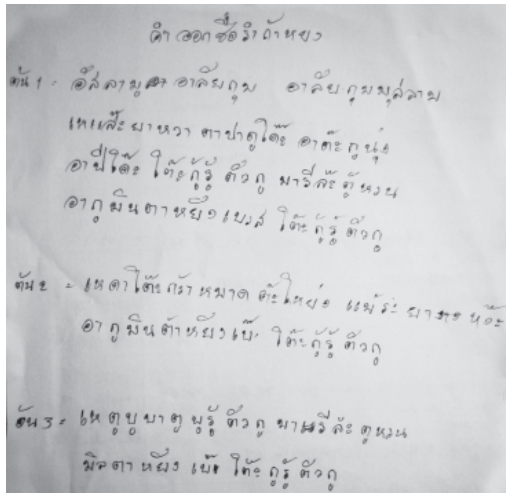 คำออกชื่อรำถ้าหยง
ต้น 1 = อัสลามู อาลัยกุม อาลัยกุมมุสลาม
เหแส๊ะยาหวา ตาปาดูโต๊ะ อาต๊ะกูนุ่ง
อาปีโต๊ะ โต๊ะกู้รู้ ตัวกู มารีล๊ะตู้หวน
อากูมินตาหยึงเบรส โต๊ะกู้รู้ ตัวกู
ต้น 2 = เหดาโต๊ะกร้าหมาด ต๊ะใหย่ง แม้ร่ะยาตงหง๊ะ
อากูมินต้าหยึงเบ๊ะ โต๊ะกู้รู้ ตัวกู
ต้น 3 = เหตูบูบาตูบูรู้ ตัวกู มารีล๊ะตูหวน
มิลตาหยึง เบ๊ะ โต๊ะกูรู้ ตัวกู